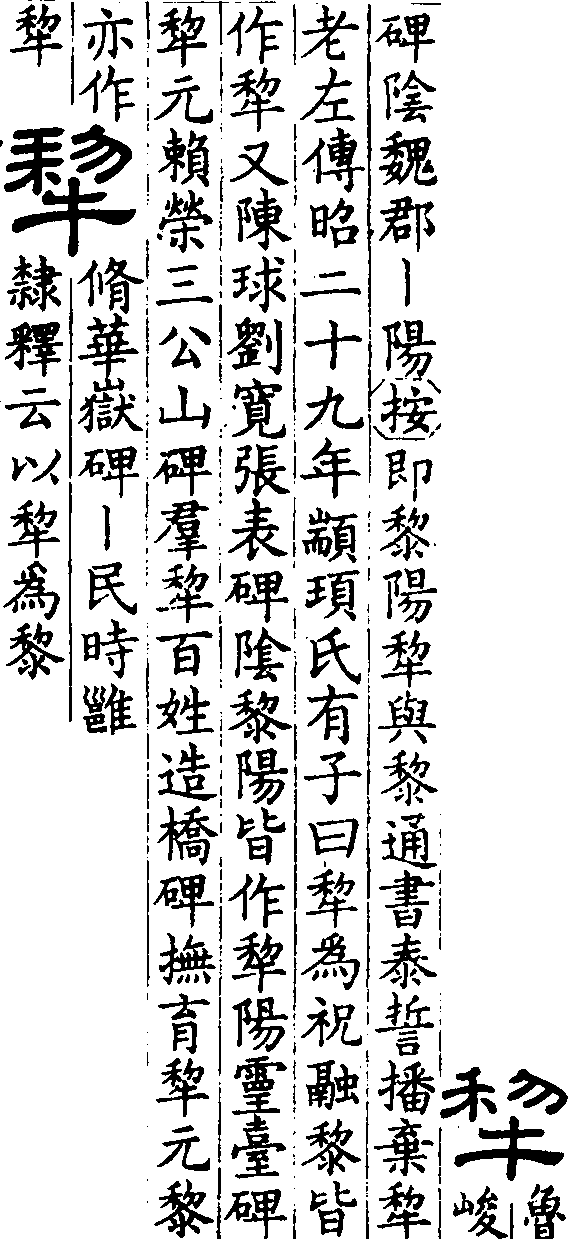 犂
魯
峻
碑隂魏郡丨陽按即黎陽犂與黎通書泰誓播棄犂
老左傳昭二十九年顓頊氏有子曰犂爲祝融黎皆
作犂又陳球劉寬張表碑隂黎陽皆作犂陽靈臺碑
犂元賴榮三公山碑羣犂百姓造橋碑撫育犂元黎
亦作
犂
犂
脩華嶽碑丨民時雝
隸釋云以犂爲黎